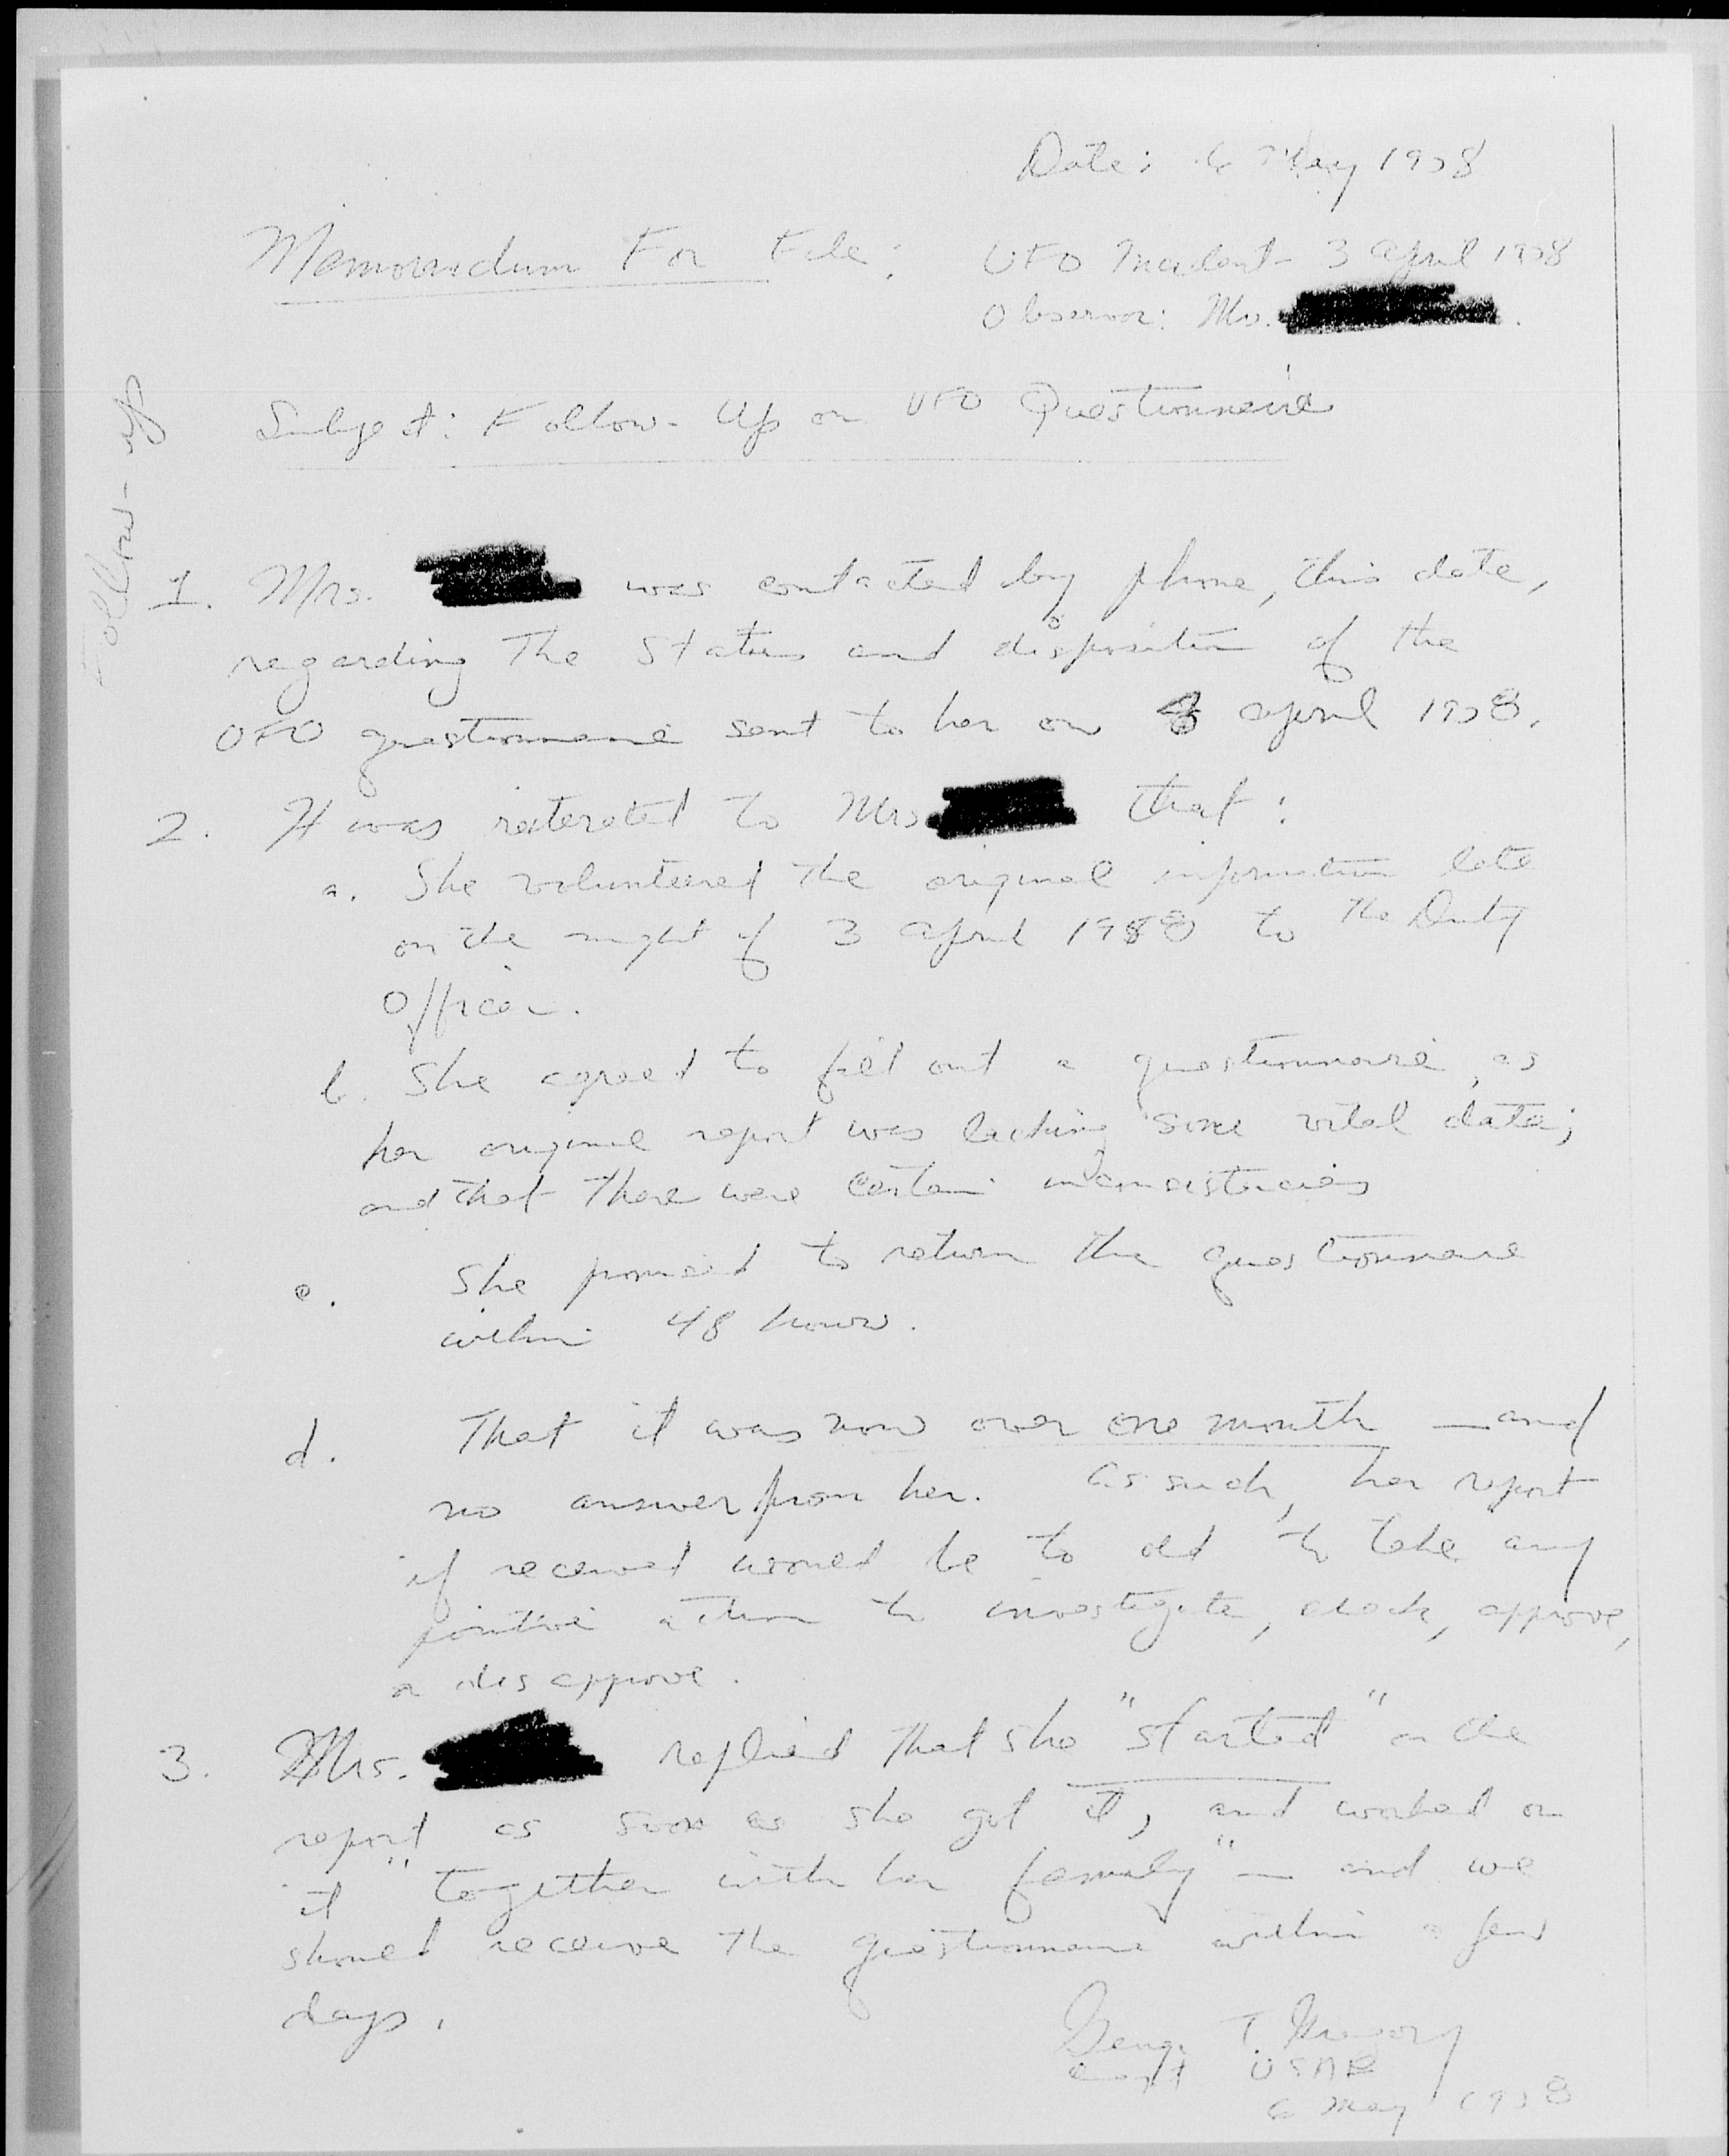 Date: 6 May 1958
Memorandum For File: UFO Incident - 3 April 1958
Observer: Mrs.
Subject: Follow-Up on UFO Questionnaire
Follow-up
1. Mrs. was contacted by phone, this date,
regarding The Status and disposition of the
UFO questionnaire sent to her on April 1958.
2. It was reiterated to Mrs that:
a. She volunteered The original information late
on the night of 3 April 1958 to The Duty
Officer.
b. She agreed to fill out a questionnaire, as
her original report was lacking some vital data;
and that There were certain inconsistencies
c. She promised to return the questionnaire
within 48 hours.
d. That it was now over one month — and
no answer from her. As such, her report
if received would be to old to take any
positive action to investigate, check, approve,
or disapprove.
3. Mrs. replied that she "started" on the
report as soon as she got it, and worked on
it "together with her family" — and we
should receive the questionnaire within a few
days.
George T. Gregory
Capt USAF
6 May 1958